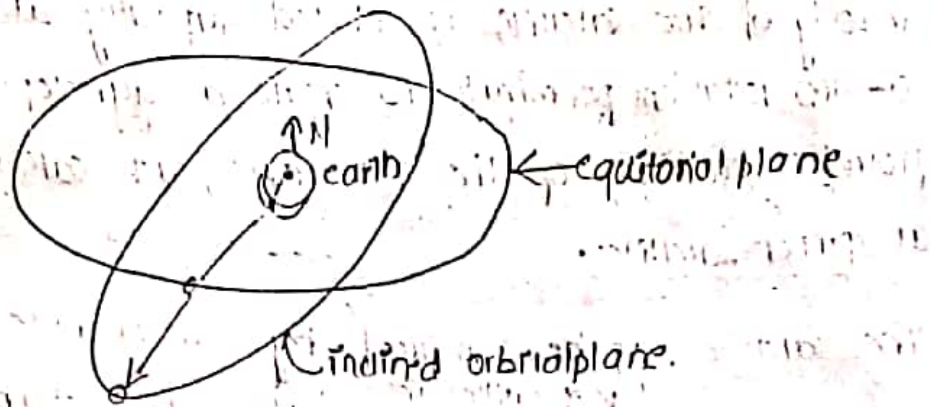 N
earth
equitorial plane
inclined orbrialplane.